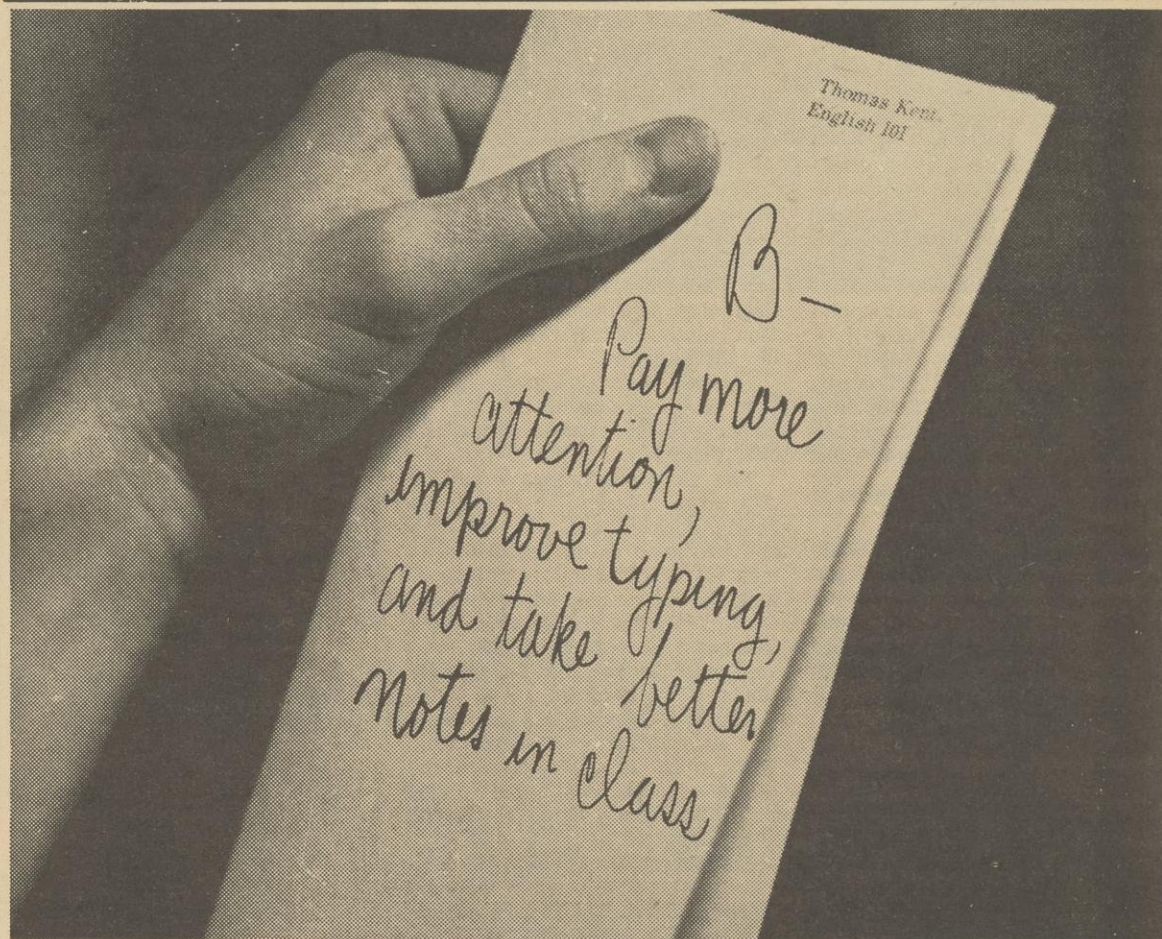 Thomas Kent
English 101
B-
Pay more
attention,
improve typing,
and take better
notes in class